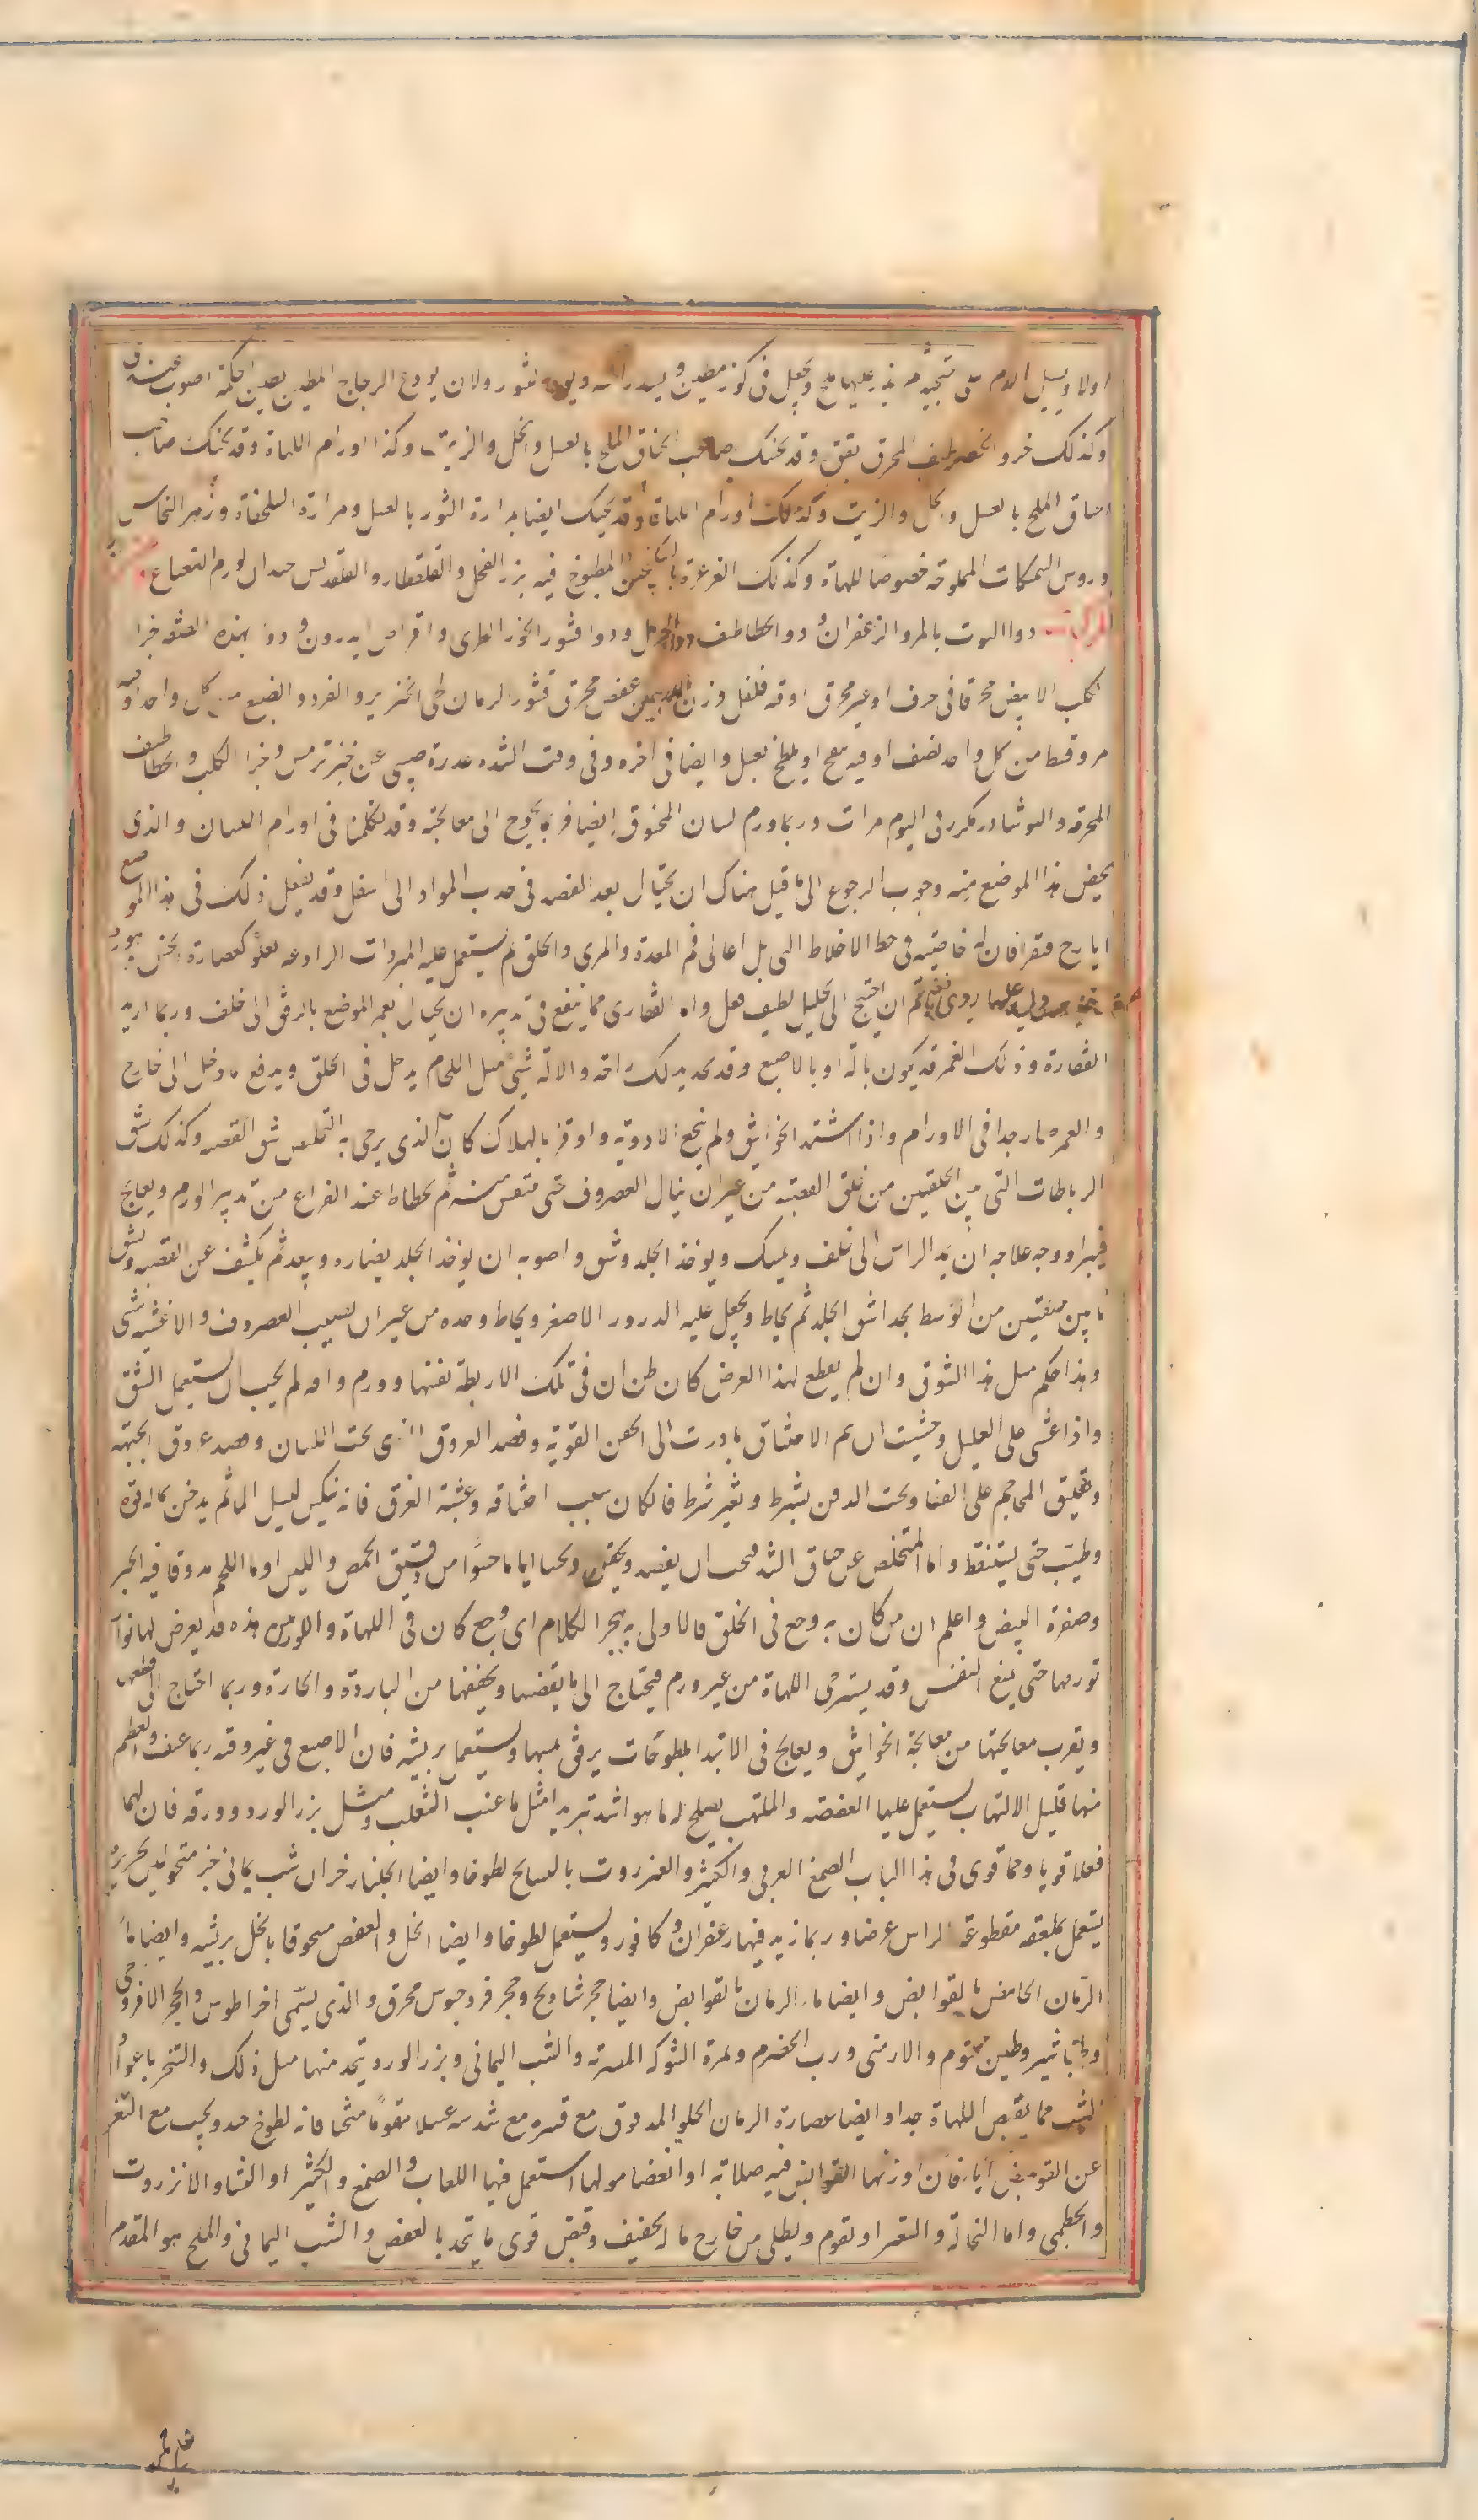 اولا ويسيل الدم حتى ثم يذر عليها ملح ويجعل فى كوز مطين ويسد راسه ويودع تنور ولان يودع الزجاج المطين بطين الحكمة اصوب عندى
وكذلك خرو الخطاطيف المحرق بقق وقد يحنك صاحب الخناق الملح بالعسل والخل والزيت وكذا اورام اللهاة وقد يحنك صاحب
الخناق الملح بالعسل والخل والزيت وكذلك اورام اللهاة وقد يحنك ايضا بمرارة الثور بالعسل ومرارة السلحفاة وزهر النحاس
وروس السمكات المملوحة خصوصا للهاة وكذلك الغرغرة بالسكنجبين المطبوخ فيه بزر الفجل والقلقطار والقلقديس جيدان لورم النغانغ
المركبات دوا التوت بالمر والزعفران ودوا الخطاطيف ودوا الحرمل ودوا قشور الجوز الطرى واقراص اندرون ودوا بهذه الصفة خرا
الكلب الابيض محرقا فى خزف او غير محرق اوقية فلفل وزن درهمين عفص محرق قشور الرمان لحى الخنزير والقرد والضبع من كل واحد اوقية
مر وقسط من كل واحد نصف اوقية ينفخ او يلطخ بعسل وايضا فى اخره وفى وقت الشدة عذرة صبى عن خبز ترمس وخرا الكلب والخطاطيف
المحرقة والنوشادر مكرر فى اليوم مرات وربما ورم لسان المخنوق ايضا فربما يحوج الى معالجته وقد تكلمنا فى اورام اللسان والذى
يخص هذا الموضع منه وجوب الرجوع الى ما قيل هناك ان يحتال بعد الفصد فى جذب المواد الى اسفل وقد يفعل ذلك فى هذا الموضع
ايارج فيقرا فان له خاصية فى حط الاخلاط التى بل اعالى فم المعدة والمرى والحلق ثم يستعمل عليه المبردات الرادعة كعصارة الخس
ثم ان احتيج الى تحليل لطيف فعل واما الفقارى فما ينفع فى تدبيره ان يحتال بغمز الموضع بالرفق الى خلف وربما ارتدت
الفقارة وذلك الغمز قد يكون بآلة او بالاصبع وقد يحد بذلك راحة والآلة شىء مثل اللجام يدخل فى الحلق ويدفع ما دخل الى خارج
والغمر ضار جدا فى الاورام واذا اشتد الخوانيق ولم ينجع الادوية واوقن بالهلاك كان الذى يرجى به التخلص شق القصبة وكذلك شق
الرباطات التى بين الحلقتين من حلق القصبة من غير ان ينال الغضروف حتى يتنفس منه ثم يخاط عند الفراغ من تدبير الورم ويعالج
فيبرا ووجه علاجه ان يمد الراس الى خلف ويمسك ويؤخذ الجلد ويشق واصوبه ان يؤخذ الجلد بصنارة ويبعد ثم يكشف عن القصبة ويشق
ما بين حلقتين من الوسط بحداشق الجلد ثم يخاط ويجعل عليه الذرور الاصفر ويخاط وحده من غير ان يصيب الغضروف والاغشية شى
وهذا حكم مثل هذا الشقوق وان لم يقطع لهذا الغرض كان ظن ان فى تلك الاربطة نفسها ورم وآفة لم يجب ان يستعمل الشق
واذا غشى على العليل وخشيت ان يتم الاختناق بادرت الى الحقن القوية وفصد العروق الذى تحت اللسان وفصد عروق الجبهة
وتعليق المحاجم على القفا وتحت الذقن بشرط وبغير شرط فان كان سبب اختناقه وغشيته الغرق فانه ينكس ليسيل الماء ثم يدخن بما له قوة
وطيب حتى يستيقظ واما المتخلص عن خناق الشد فيجب ان يفصد ويحقن ويحسا اياما حسوا من دقيق الحمص واللبن او ماء اللحم مدوقا فيه الخبز
وصفرة البيض واعلم ان من كان به وجع فى الحلق فالاولى به هجر الكلام اى وجع كان فى اللهاة واللوزتين هذه قد يعرض لها نوازل
تورمها حتى يمنع النفس وقد يسترخى اللهاة من غير ورم فيحتاج الى ما يقبضها ويجففها من الباردة والحارة وربما احتاج الى قطعها
ويقرب معالجتها من معالجة الخوانيق ويعالج فى الابتدا بلطوخات يرفق بمسها ويستعمل بريشة فان الاصبع فى غير وقته ربما عنف والعظم
منها قليل الالتهاب يستعمل عليها العفصة والملتهب يصلح له ما هو اشد تبريدا مثل ماء عنب الثعلب ومثل بزر الورد وورقه فان لهما
فعلا قويا ومما قوى فى هذا الباب الصمغ العربى والكثيرا والعنزروت بالسايح لطوخا وايضا الجلنار جزءان شب يمانى جزء منخولين بحرير
يستعمل بملعقة مقطوعة الراس عرضا وربما زيد فيها زعفران وكافور ويستعمل لطوخا وايضا الخل والعفص مسحوقا بالخل بريشة وايضا ماء
الرمان الحامض بالقوابض وايضا ماء الرمان بالقوابض وايضا حجر شاذنج وحجر فروجيوس محرق والذى يسمى اخراطوس والحجر الافروجى
وطباشير وطين مختوم والارمنى ورب الحصرم وثمرة الشوكة المصرية والشب اليمانى وبزر الورد يتخذ منها مثل ذلك والتبخر باعواد
الشب مما يقبض اللهاة جدا وايضا عصارة الرمان الحلو المدقوق مع قشره مع سدسه عسلا مقوما مثخنا فانه لطوخ جيد ويجب مع التغرغر
عن القوابض اياه فان اورثها القوابض فيه صلابة او انعضا مولما استعمل فيها اللعاب والصمغ والكثيرا او النشا والانزروت
والخطمى واما النخالة والتمر اوتقوم ويطلى من خارج ماله تجفيف وقبض قوى ما يتخذ بالعفص والشب اليمانى والملح هو المقدم